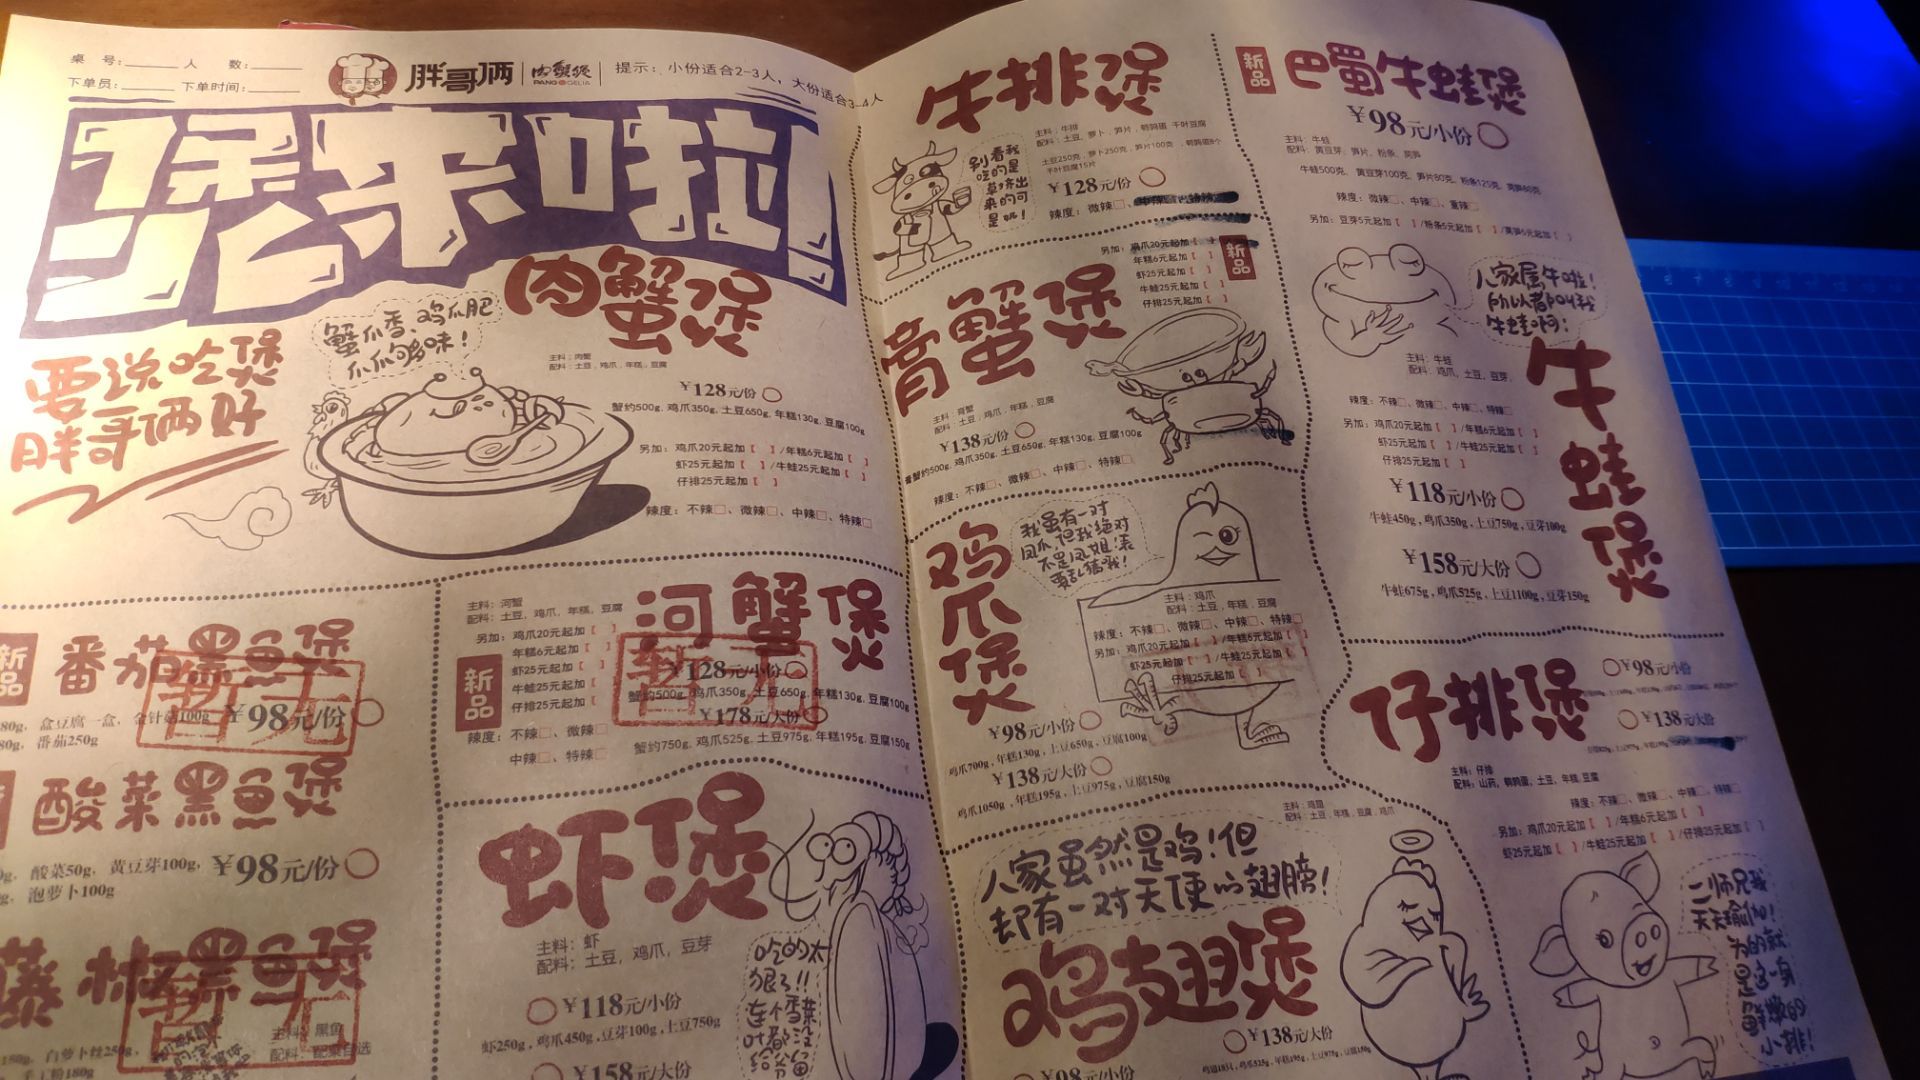 桌 号:______ 人 数:______
下单员:______ 下单时间:______
胖哥俩
肉蟹煲
PANGGELIA
提示:小份适合2-3人,大份适合3-4人
煲来啦!
要说吃煲
胖哥俩好
蟹爪香、鸡爪肥
爪爪够味!
肉蟹煲
主料:肉蟹
配料:土豆,鸡爪,年糕,豆腐
¥128元/份
蟹约500g, 鸡爪350g, 土豆650g, 年糕130g, 豆腐100g
另加:鸡爪20元起加【 】/年糕6元起加【 】
虾25元起加【 】/牛蛙25元起加【 】
仔排25元起加【 】
辣度:不辣□、微辣□、中辣□、特辣□
新品
番茄黑鱼煲
暂无
80g, 盒豆腐一盒, 金针菇100g
¥98元/份
80g, 番茄250g
酸菜黑鱼煲
酸菜50g, 黄豆芽100g,
¥98元/份
泡萝卜100g
藤椒黑鱼煲
暂无
主料:黑鱼
配料:配菜自选
白萝卜丝250g,
主料:河蟹
配料:土豆,鸡爪,年糕,豆腐
另加:鸡爪20元起加【 】
年糕6元起加【 】
虾25元起加【 】
牛蛙25元起加【 】
仔排25元起加【 】
新品
辣度:不辣□、微辣□
中辣□、特辣□
河蟹煲
暂无
¥128元/小份
蟹约500g, 鸡爪350g, 土豆650g, 年糕130g, 豆腐100g
¥178元/大份
蟹约750g, 鸡爪525g, 土豆975g, 年糕195g, 豆腐150g
虾煲
主料:虾
配料:土豆,鸡爪,豆芽
¥118元/小份
虾250g, 鸡爪450g, 豆芽100g, 土豆750g
¥158元/大份
吃的太
狠了!!
连个香菜
叶都没
给留
牛排煲
主料:牛排
配料:土豆,萝卜,笋片,鹌鹑蛋 千叶豆腐
土豆250克,萝卜250克,笋片100克,鹌鹑蛋8个
千叶豆腐15片
¥128元/份
辣度:微辣□、
别看我
吃的是
草,挤出
来的可
是奶!
另加:鸡爪20元起加【 】
年糕6元起加【 】
虾25元起加【 】
牛蛙25元起加【 】
仔排25元起加【 】
新品
膏蟹煲
主料:膏蟹
配料:土豆,鸡爪,年糕,豆腐
¥138元/份
膏蟹约500g, 鸡爪350g, 土豆650g, 年糕130g, 豆腐100g
辣度:不辣□、微辣□、中辣□、特辣□
鸡爪煲
我虽有一对
凤爪,但我绝对
不是凤姐,表
要乱猜哦!
主料:鸡爪
配料:土豆,年糕,豆腐
辣度:不辣□、微辣□、中辣□、特辣□
另加:鸡爪20元起加【 】/年糕6元起加【 】
虾25元起加【 】/牛蛙25元起加【 】
仔排25元起加【 】
¥98元/小份
鸡爪700g, 年糕130g, 土豆650g, 豆腐100g
¥138元/大份
鸡爪1050g, 年糕195g, 土豆975g, 豆腐150g
主料:鸡翅
配料:土豆,年糕,豆腐,鸡爪
人家虽然是鸡!但
却有一对天使的翅膀!
鸡翅煲
¥138元/大份
¥98元/小份
新品
巴蜀牛蛙煲
¥98元/小份
主料:牛蛙
配料:黄豆芽、笋片、粉条、莴笋
牛蛙500克、黄豆芽100克、笋片80克,粉条125克,莴笋80克
辣度:微辣□、中辣□、重辣□
另加:豆芽5元起加【 】/粉条5元起加【 】/莴笋5元起加【 】
人家属牛啦!
所以者都叫我
牛蛙啊!
牛蛙煲
主料:牛蛙
配料:鸡爪,土豆,豆芽,
辣度:不辣□、微辣□、中辣□、特辣□
另加:鸡爪20元起加【 】/年糕6元起加【 】
虾25元起加【 】/牛蛙25元起加【 】
仔排25元起加【 】
¥118元/小份
牛蛙450g, 鸡爪350g, 土豆750g, 豆芽100g
¥158元/大份
牛蛙675g, 鸡爪525g, 土豆1100g, 豆芽150g
仔排煲
¥98元/小份
¥138元/大份
主料:仔排
配料:山药,鹌鹑蛋,土豆,年糕 豆腐
辣度:不辣□、微辣□、中辣□、特辣□
另加:鸡爪20元起加【 】/年糕6元起加【 】
虾25元起加【 】/牛蛙25元起加【 】/仔排25元起加【 】
二师兄我
天天瑜加!
为的就
是这一身
鲜嫩的
小排!